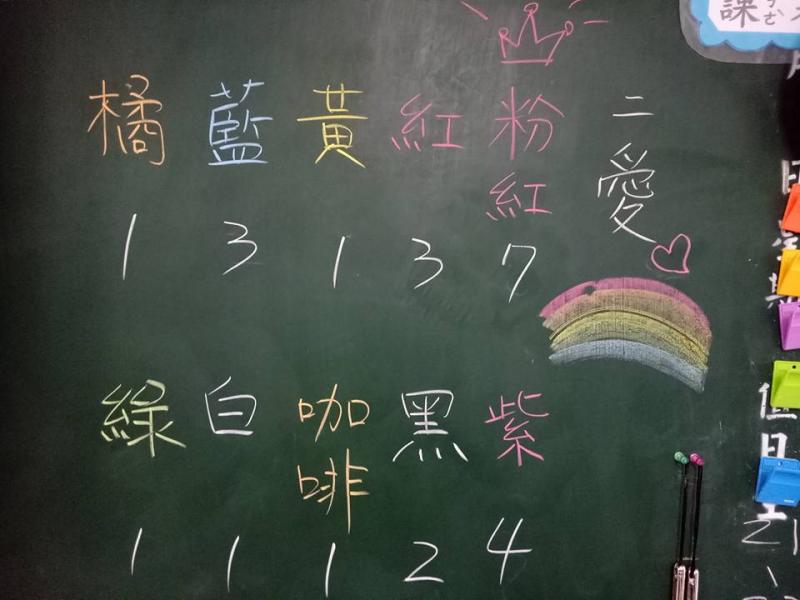 二愛
粉紅 紅 黃 藍 橘
7 3 1 3 1
紫 黑 咖啡 白 綠
4 2 1 1 1
課